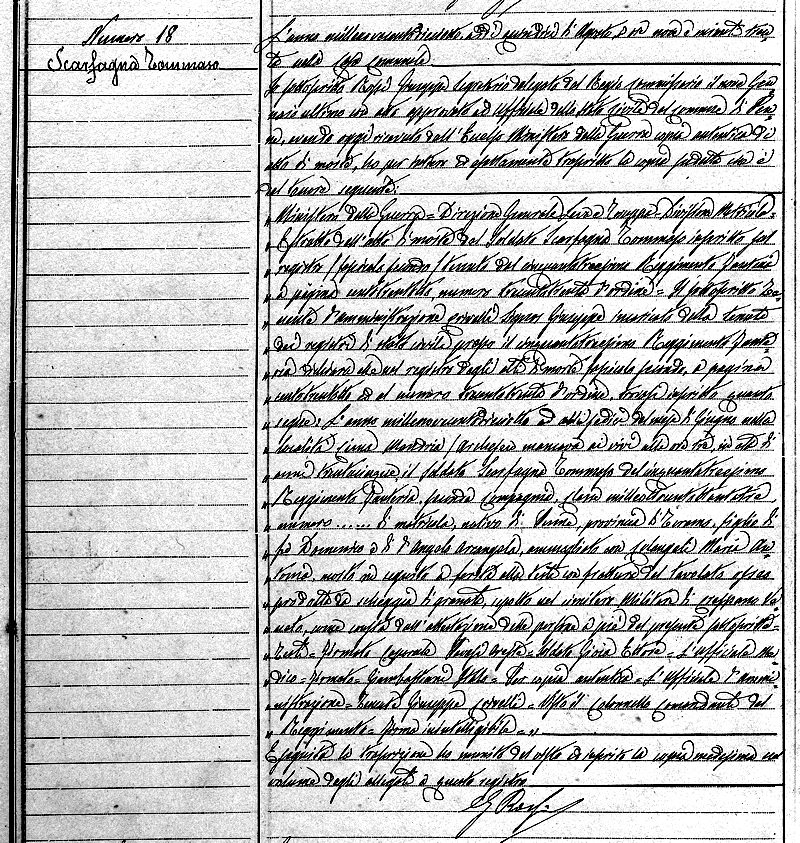 Numero 18
Scarfagna Tommaso
L'anno millenovecentodiciotto, addì quindici di Agosto, a ore nove e minuti tren
ta nella Casa comunale.
Io sottoscritto Rossi Giuseppe Segretario delegato dal Regio Commissario il nove Gen
naio ultimo con atto approvato ad Uffiziale dello Stato Civile del comune di Pen
na, avendo oggi ricevuto dall' Ministero della Guerra copia autentica di
atto di morte, ho per intero ed esattamente trascritto la copia suddetta che è
del tenore seguente:
„ Ministero della Guerra = Direzione Generale Leva e Truppa = Divisione Matricole =
„ Estratto dell'atto di morte del Soldato Scarfagna Tommaso inscritto sul
„ registro (fascicolo secondo) tenuto dal cinquantatreesimo Reggimento Fanteria
„ a pagina centotrentotto, numero trecentotrenta d'ordine = Il sottoscritto Te
„ nente d'amministrazione Giuseppe incaricato della tenuta
„ dei registri di stato civile presso il cinquantatreesimo Reggimento Fante
„ ria dichiara che nel registro degli atti di morte fascicolo secondo, a pagina
„ centotrentotto ed al numero trecentotrenta d'ordine, trovasi inscritto quanto
„ segue: L'anno millenovecentodiciotto ed alli sedici del mese di Giugno nella
„ località Cima mancava ai vivi alla ora in età di
„ anni trentacinque il soldato Scarfagna Tommaso del cinquantatreesimo
„ Reggimento Fanteria, seconda Compagnia, classe milleottocentottantatre,
„ numero ...... di matricola, nativo di Penna, provincia di Teramo, figlio di
„ fu Domenico e di D'Angelo Arcangela, ammogliato con Maria An
„ tonia, morto in seguito a ferita alla testa con frattura del tavolato osseo
„ prodotta da scheggia di granata, sepolto nel cimitero Militare di Crespano Ve
„ neto, come consta dall'attestazione delle persone a piè del presente sottoscritte =
„ Testi = Firmato Caporale = Soldato Gioia Ettore = L'ufficiale Me
„ dico = Firmato = = Per copia autentica = L'Ufficiale d'ammi
„ nistrazione = Tenente Giuseppe = Visto il Colonnello Comandante del
„ Reggimento = firma inintelligibile = „
Eseguita la trascrizione ho munito del visto ed inserito la copia medesima nel
volume degli allegati a questo registro
G Rossi